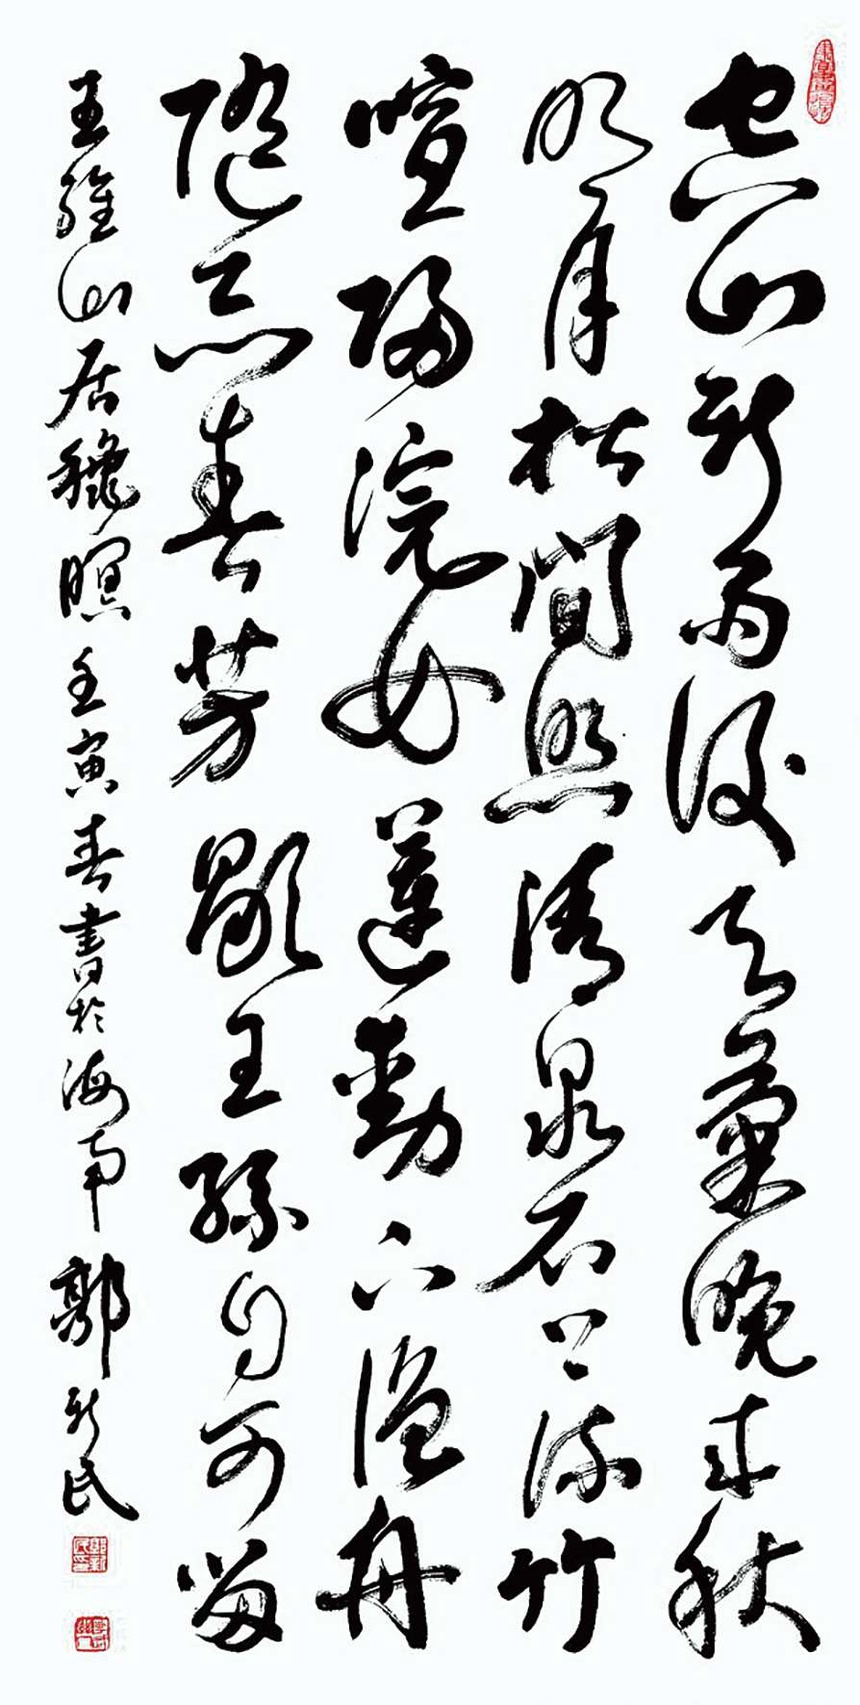 空山新雨後天氣晚來秋
明月松間照清泉石上流竹
喧歸浣女蓮動下漁舟
隨意春芳歇王孫自可留
王維山居龝暝壬寅春書於海南郭新民